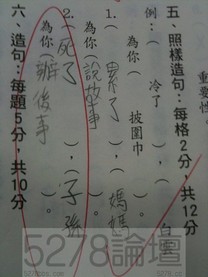 重要性
五、照樣造句:每格2分,共12分
例:( 冷了 ),( 白
為你( 披圍巾 )。
1.( 累了 ),( 媽媽
為你( 說故事 )。
2.( 死了 ),( 子孫
為你( 辦後事 )。
六、造句:每題5分,共10分
5278論壇